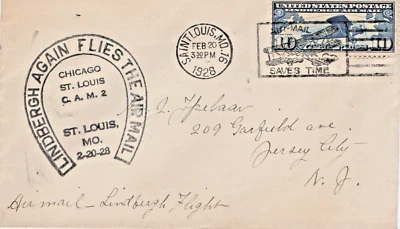 LINDBERGH AGAIN FLIES THE AIR MAIL
CHICAGO
ST. LOUIS
C. A. M. 2
ST. LOUIS,
MO.
2-20-28
SAINT LOUIS, MO. 16
FEB 20
3:30 PM
1928
UNITED STATES POSTAGE
LINDBERGH AIR MAIL
10 10
AIR-MAIL
SAVES TIME
209 Garfield ave.
Jersey City
N. J.
Airmail - Lindbergh Flight